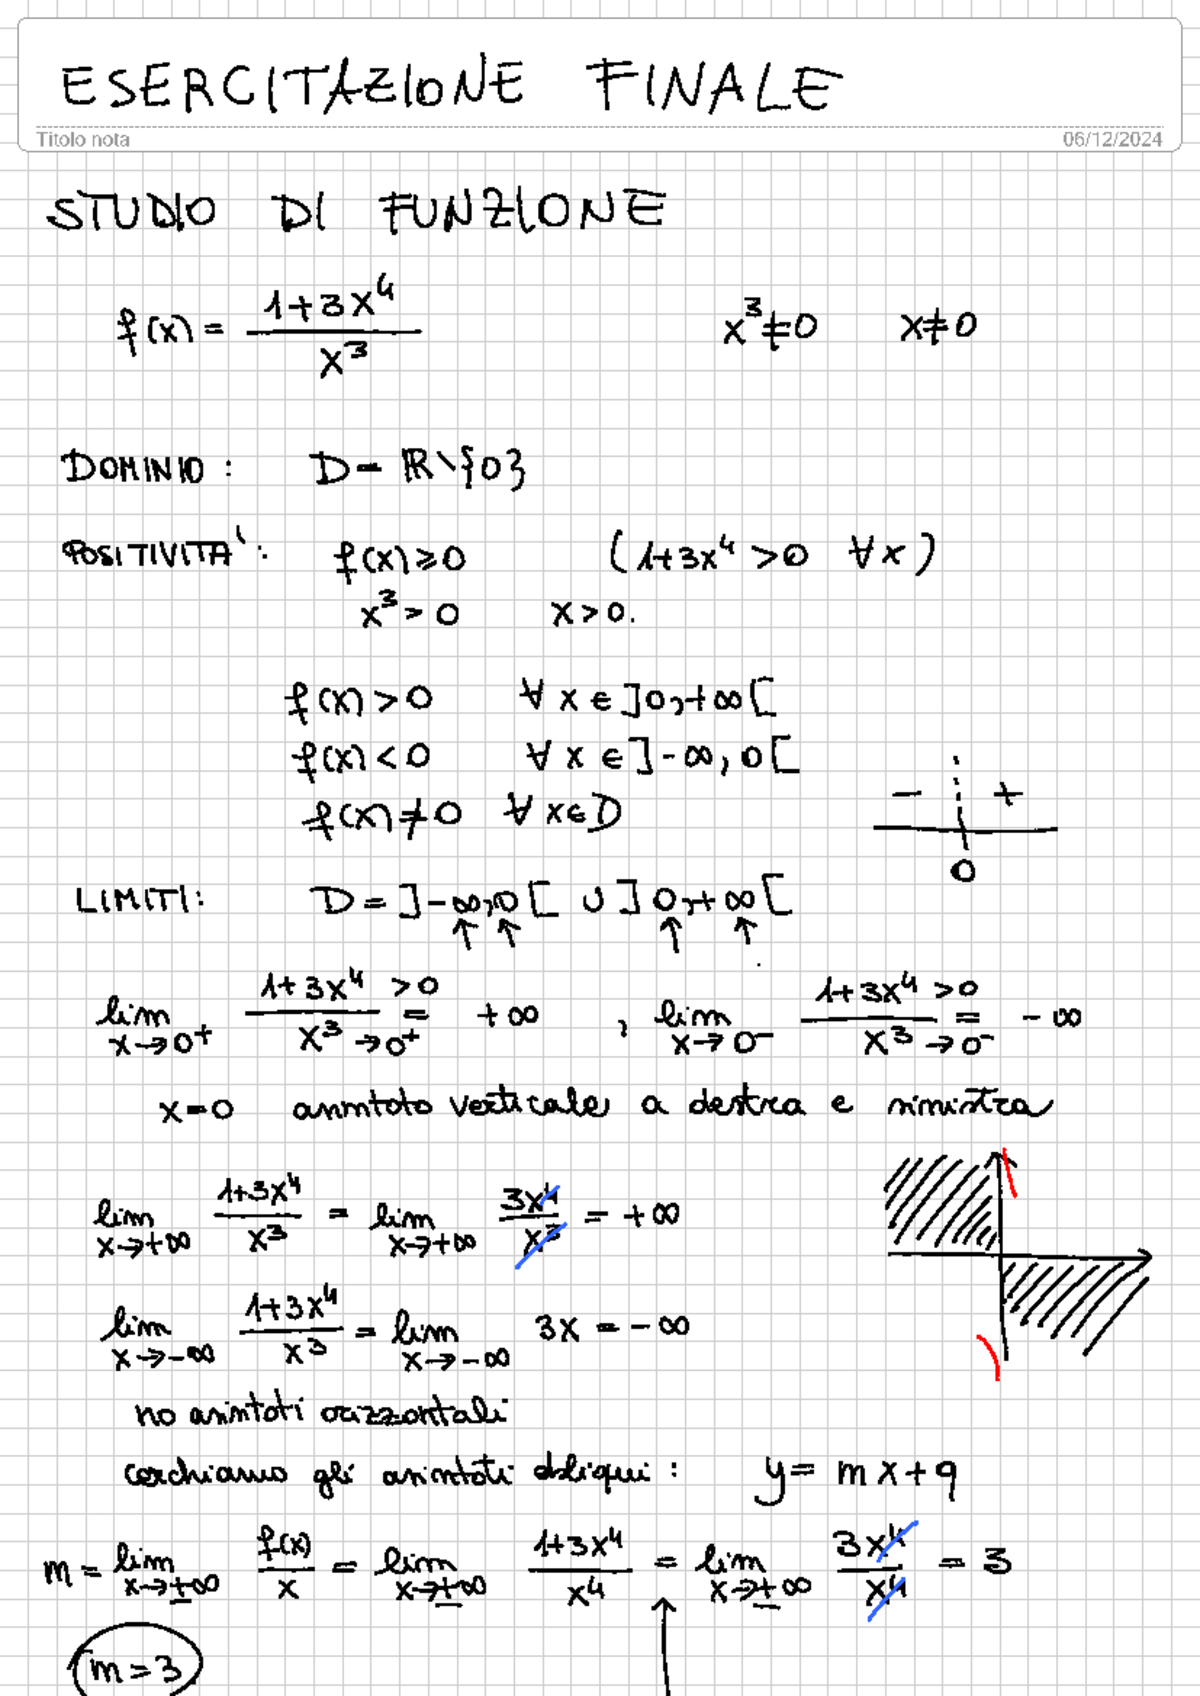 ESERCITAZIONE FINALE
Titolo nota 06/12/2024
STUDIO DI FUNZIONE
f(x) = (1+3x⁴)/x³   x³≠0   x≠0
DOMINIO: D = ℝ\{0}
POSITIVITA': f(x)⩾0   (1+3x⁴ >0 ∀x)
x³>0   x>0.
f(x)>0   ∀x∈]0,+∞[
f(x)<0   ∀x∈]-∞,0[
f(x)≠0   ∀x∈D
- +
0
LIMITI: D = ]-∞,0[ ∪ ]0,+∞[
↑ ↑ ↑ ↑
lim x→0⁺ (1+3x⁴ >0)/(x³ →0⁺) = +∞ , lim x→0⁻ (1+3x⁴ >0)/(x³ →0⁻) = -∞
x=0 asintoto verticale a destra e sinistra
lim x→+∞ (1+3x⁴)/x³ = lim x→+∞ 3x⁴/x³ = +∞
lim x→-∞ (1+3x⁴)/x³ = lim x→-∞ 3x = -∞
no asintoti orizzontali
cerchiamo gli asintoti obliqui: y = mx+q
m = lim x→±∞ f(x)/x = lim x→±∞ (1+3x⁴)/x⁴ = lim x→±∞ 3x⁴/x⁴ = 3
m=3